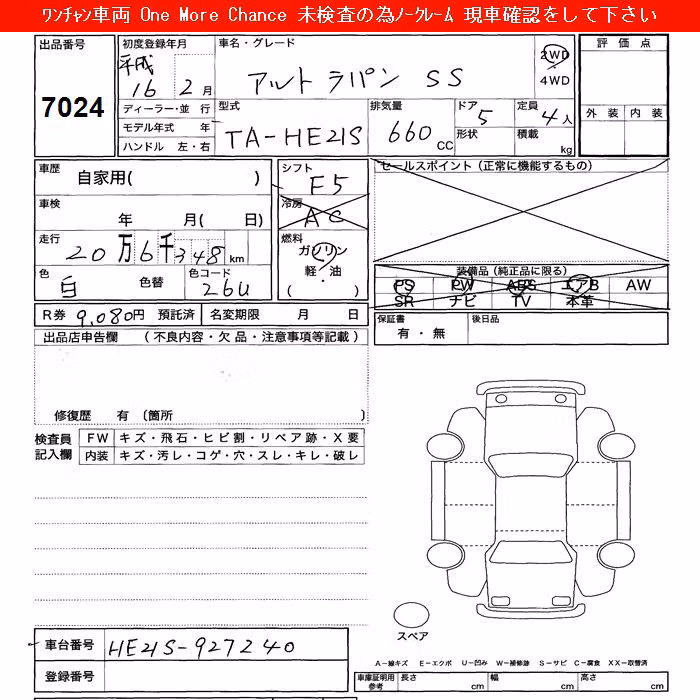 ワンチャン車両 One More Chance 未検査の為ノークレーム 現車確認をして下さい
出品番号
7024
初度登録年月
平成 16 2月
車名・グレード
アルト ラパン SS
2WD
4WD
評価点
外装 内装
ディーラー・並行
モデル年式 年
ハンドル 左・右
型式
TA-HE21S
排気量
660
CC
ドア
5
形状
定員
4人
積載
kg
車歴
自家用( )
車検
年 月( 日)
走行
20万6千348km
色
白
色替
色コード
26U
シフト
F5
冷房
AC
燃料
ガソリン
軽・油
( )
セールスポイント(正常に機能するもの)
装備品(純正品に限る)
PS PW ABS エアB AW
SR ナビ TV 本革
R券 9,080円 預託済 名変期限 月 日
保証書
有・無
後日品
出品店申告欄 (不良内容・欠品・注意事項等記載)
修復歴 有 (箇所 )
検査員
記入欄
FW キズ・飛石・ヒビ割・リペア跡・X要
内装 キズ・汚レ・コゲ・穴・スレ・キレ・破レ
スペア
車台番号 HE21S-927240
登録番号
A－線キズ E－エクボ U－凹み W－補修跡 S－サビ C－腐食 XX－取替済
車庫証明用
参考
長さ cm
幅 cm
高さ cm